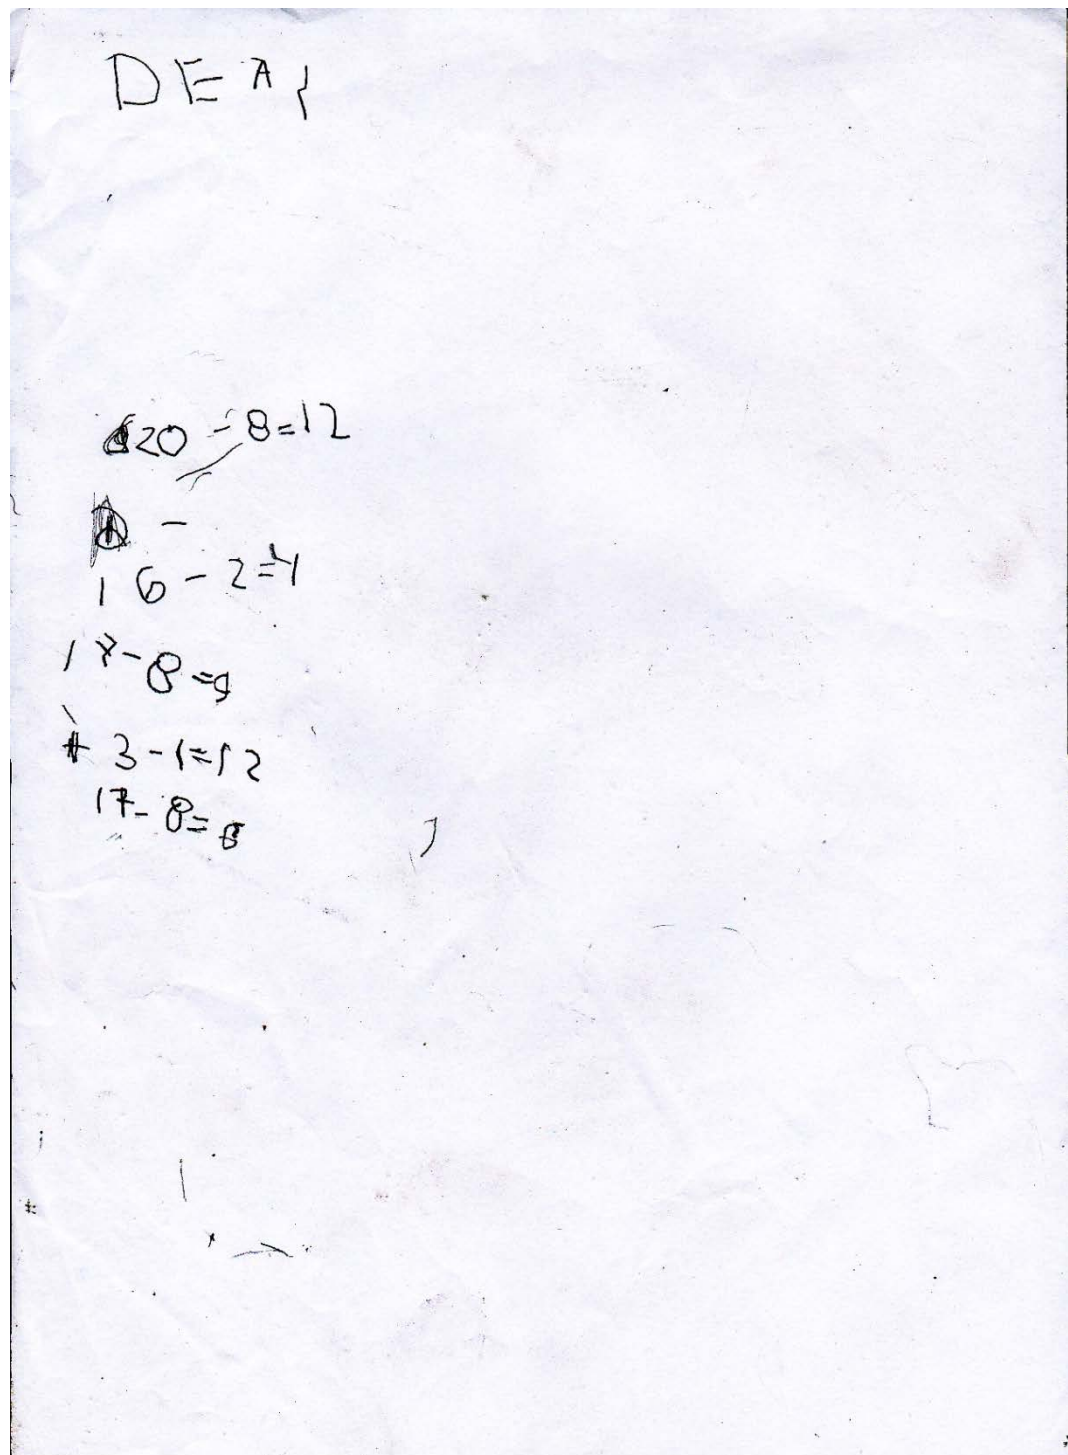 DEA
20 - 8 = 12
-
16 - 2 =
17 - 8 = 9
3 - 1 = 12
17 - 8 =